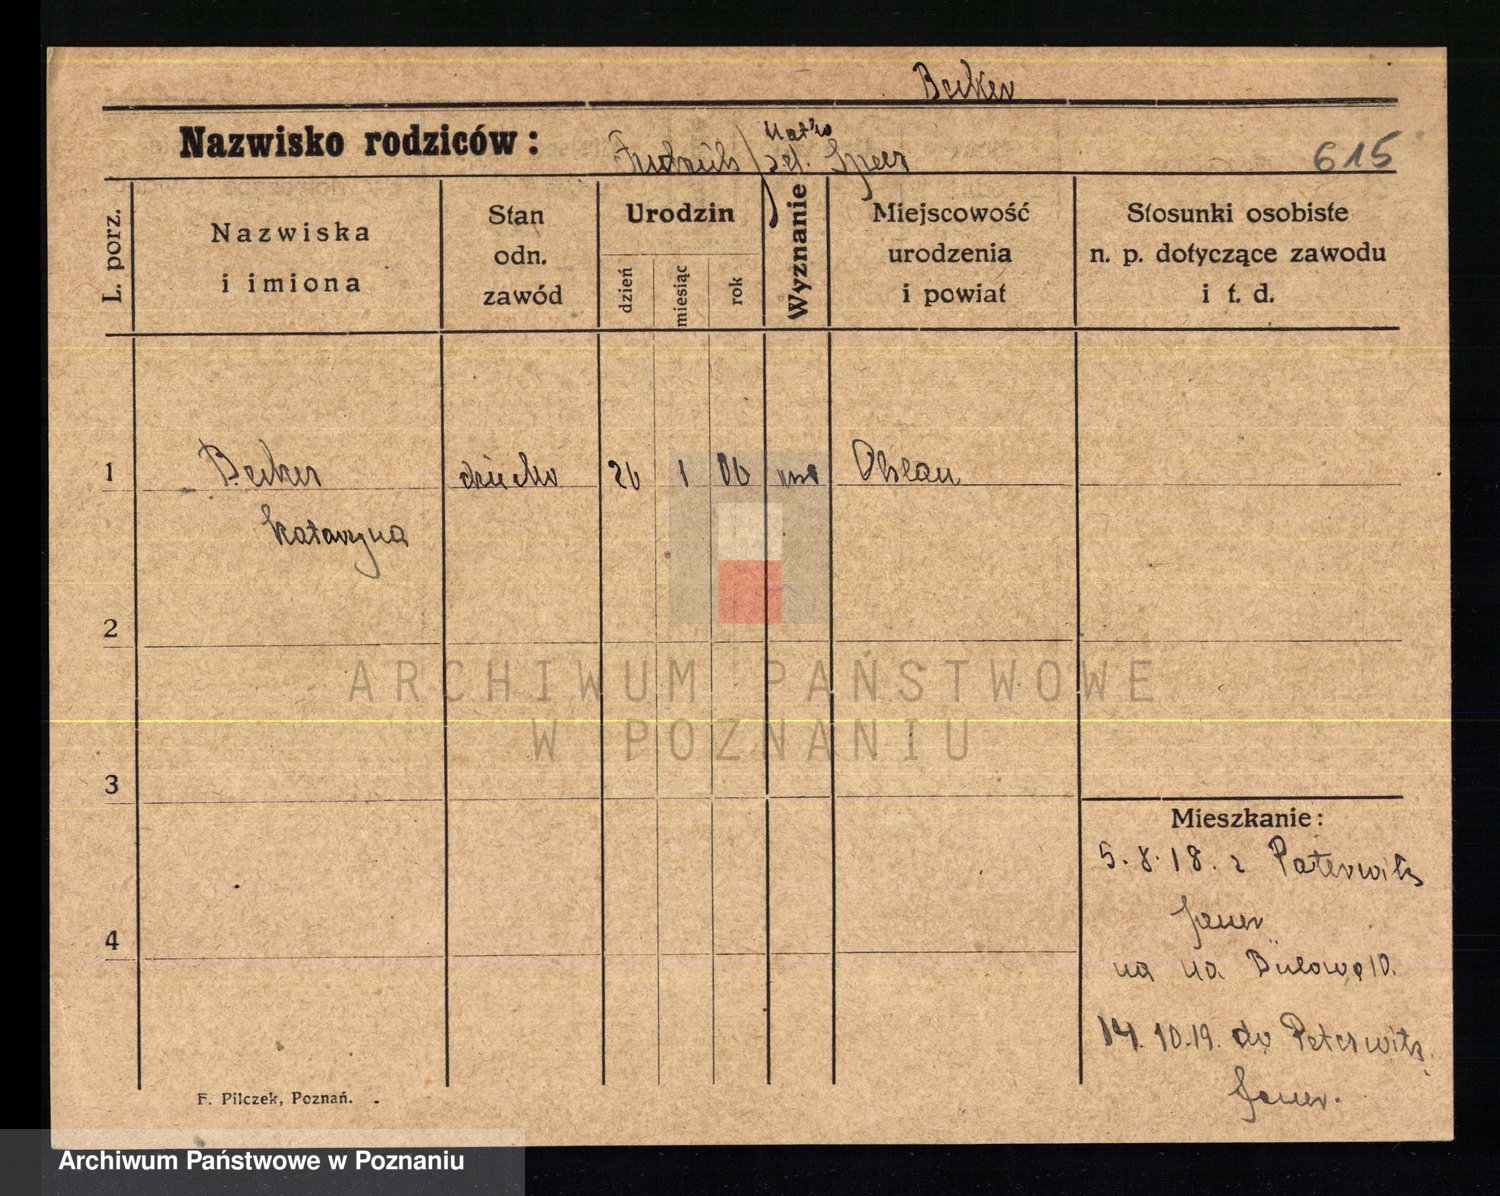 Becker
Nazwisko rodziców:
615
L. porz.
Nazwiska
i imiona
Stan
odn.
zawód
Urodzin
dzień
miesiąc
rok
Wyznanie
Miejscowość
urodzenia
i powiat
Stosunki osobiste
n. p. dotyczące zawodu
i t. d.
1
Becker
Katarzyna
dziecko
26
1
06
Ohlau
2
ARCHIWUM PAŃSTWOWE
W POZNANIU
3
4
Mieszkanie:
5.8.18. z Peterwitz
Jauer
na Bülowa 10.
14.10.19. do Peterwitz
Jauer.
F. Pilczek, Poznań.
Archiwum Państwowe w Poznaniu